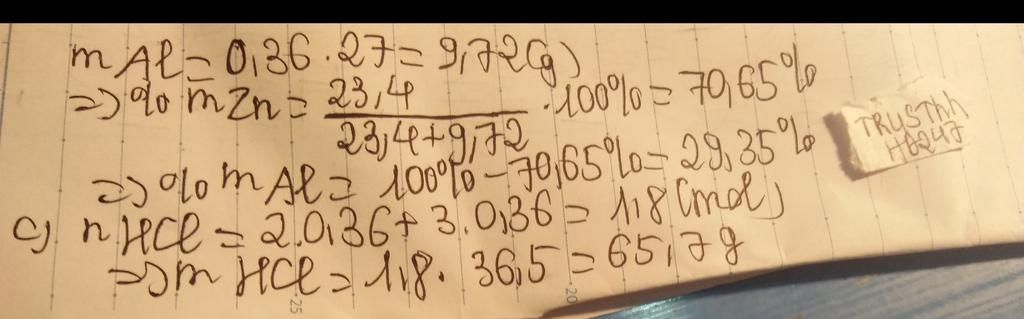 mAl = 0,36 . 27 = 9,72(g)
=> % mZn = 23,4 / 23,4+9,72 . 100% = 70,65%
=> % mAl = 100% - 70,65% = 29,35%
c) nHCl = 2.0,36 + 3.0,36 = 1,8 (mol)
=> mHCl = 1,8 . 36,5 = 65,7g
TRUSThh
HB247
25
20